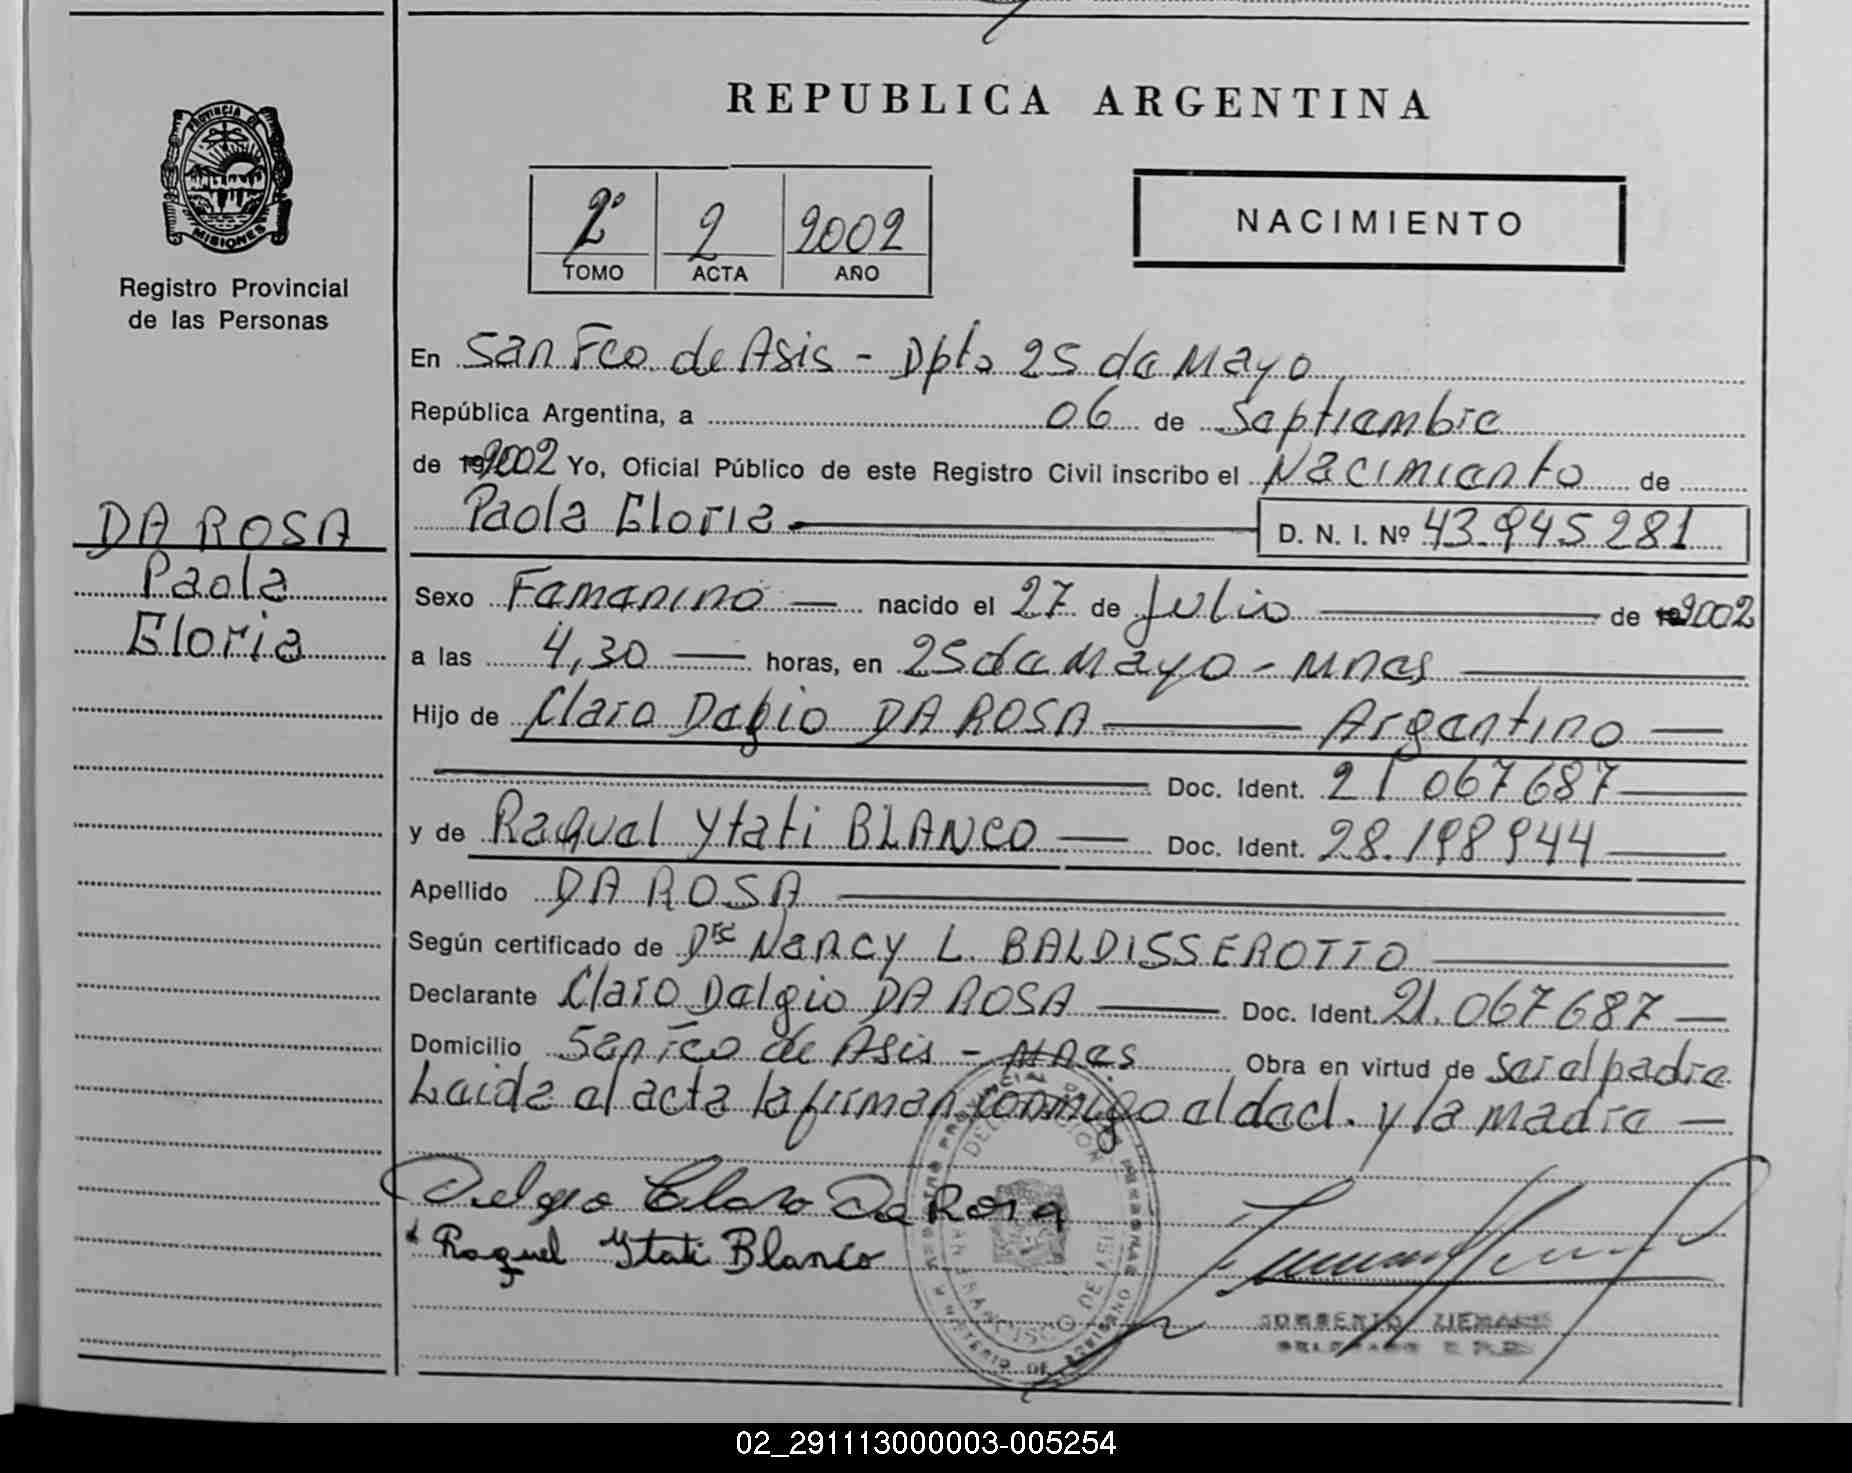 REPUBLICA ARGENTINA
PROVINCIA DE
MISIONES
Registro Provincial
de las Personas
2º 2 2002
TOMO ACTA AÑO
NACIMIENTO
En San Fco. de Asis - Dpto 25 de Mayo
República Argentina, a 06 de Septiembre
de 2002 Yo, Oficial Público de este Registro Civil inscribo el Nacimiento de
DA ROSA
Paola
Gloria
Paola Gloria D. N. I. Nº 43.945 281
Sexo Femenino nacido el 27 de Julio de 2002
a las 4,30 horas, en 25 de Mayo - Mnes
Hijo de Claro Delgio DA ROSA Argentino
Doc. Ident. 21 067 687
y de Raquel Ytati BLANCO Doc. Ident. 28.198 944
Apellido DA ROSA
Según certificado de Dra Nancy L. BALDISSEROTTO
Declarante Claro Delgio DA ROSA Doc. Ident. 21.067 687
Domicilio San Fco de Asis - Mnes Obra en virtud de ser el padre
Leida el acta la firman conmigo el decl. y la madre
Delgio Claro Da Rosa
Raquel Ytati Blanco
SAN FRANCISCO DE ASIS
MINISTERIO DE GOBIERNO
02_291113000003-005254